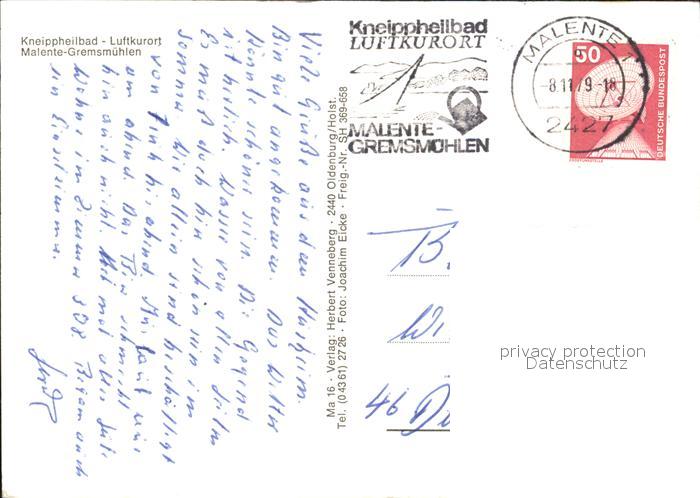 Kneippheilbad - Luftkurort
Malente-Gremsmühlen
Viele Grüße aus dem
Bin gut angekommen. Das Wetter
könnt schöner sein. Die Gegend
ist herrlich Wasser von allen Seiten
Es muß doch hier schön sein im
Sommer. Wir allein sind beschäftigt
von früh bis abend.
am abend Das Bier schmeckt
hier auch nicht. Mit mal alles
Wohne im Zimmer 308
ein Einzelzimmer.
Ma 16 · Verlag: Herbert Venneberg · 2440 Oldenburg/Holst.
Tel. (0 43 61) 27 26 · Foto: Joachim Eicke · Freig.-Nr. SH 369-658
Kneippheilbad
LUFTKURORT
MALENTE-
GREMSMÜHLEN
MALENTE 1
-8.11.79-18
2427
50
DEUTSCHE BUNDESPOST
ERDEFUNKSTELLE
B.
Wi
46 Do
privacy protection
Datenschutz